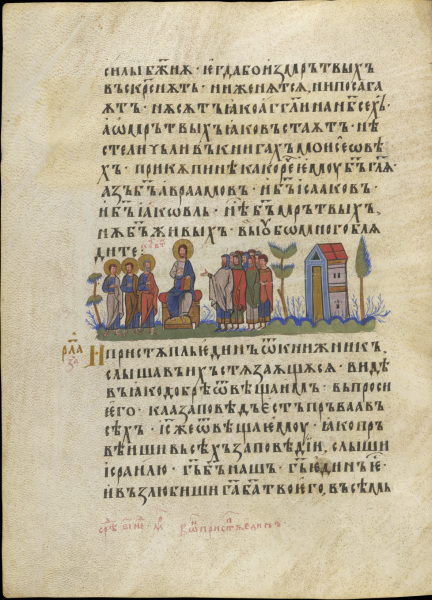 силы бж҃иѧ · егда бо из мрьтвыхъ
въскрⷭ҇нѫтъ · ни женѧтсѧ, ни посага
ѫтъ · нѫ сѫтъ ꙗко агг҃ли на нб҃сехъ ·
а ѡ мрътвыхъ ꙗко въстаѫтъ · нѣ
сте ли чъли въ книгахъ мѡисеѡвѣ
хъ · при кѫпинѣ како рече емоу бъ҃ гл҃ѧ ·
азъ бъ҃ авраамовъ · и бъ҃ ісааковъ ·
и бъ҃ іаковль · нѣ бъ҃ мрътвыхъ,
нѫ бъ҃ живыхъ · вы ѹбо много блѧ
дите ⁘
И пристѫпль единъ ѿ книжникъ,
слышавъ ихъ стѧзаѫщѫсѧ · видѣ
въ ꙗко добрѣ ѿвѣща имъ · въпроси
его · каа заповѣдъ естъ пръваа въ
сѣхъ · іс҃ же ѿвѣща емоу · ꙗко пръ
вѣиши въсѣхъ заповѣдїи, слыши
ісраилю · гь҃ бъ҃ нашъ · гь҃ единъ е ·
и възлюбиши га҃ ба҃ твоего, въсѣмь